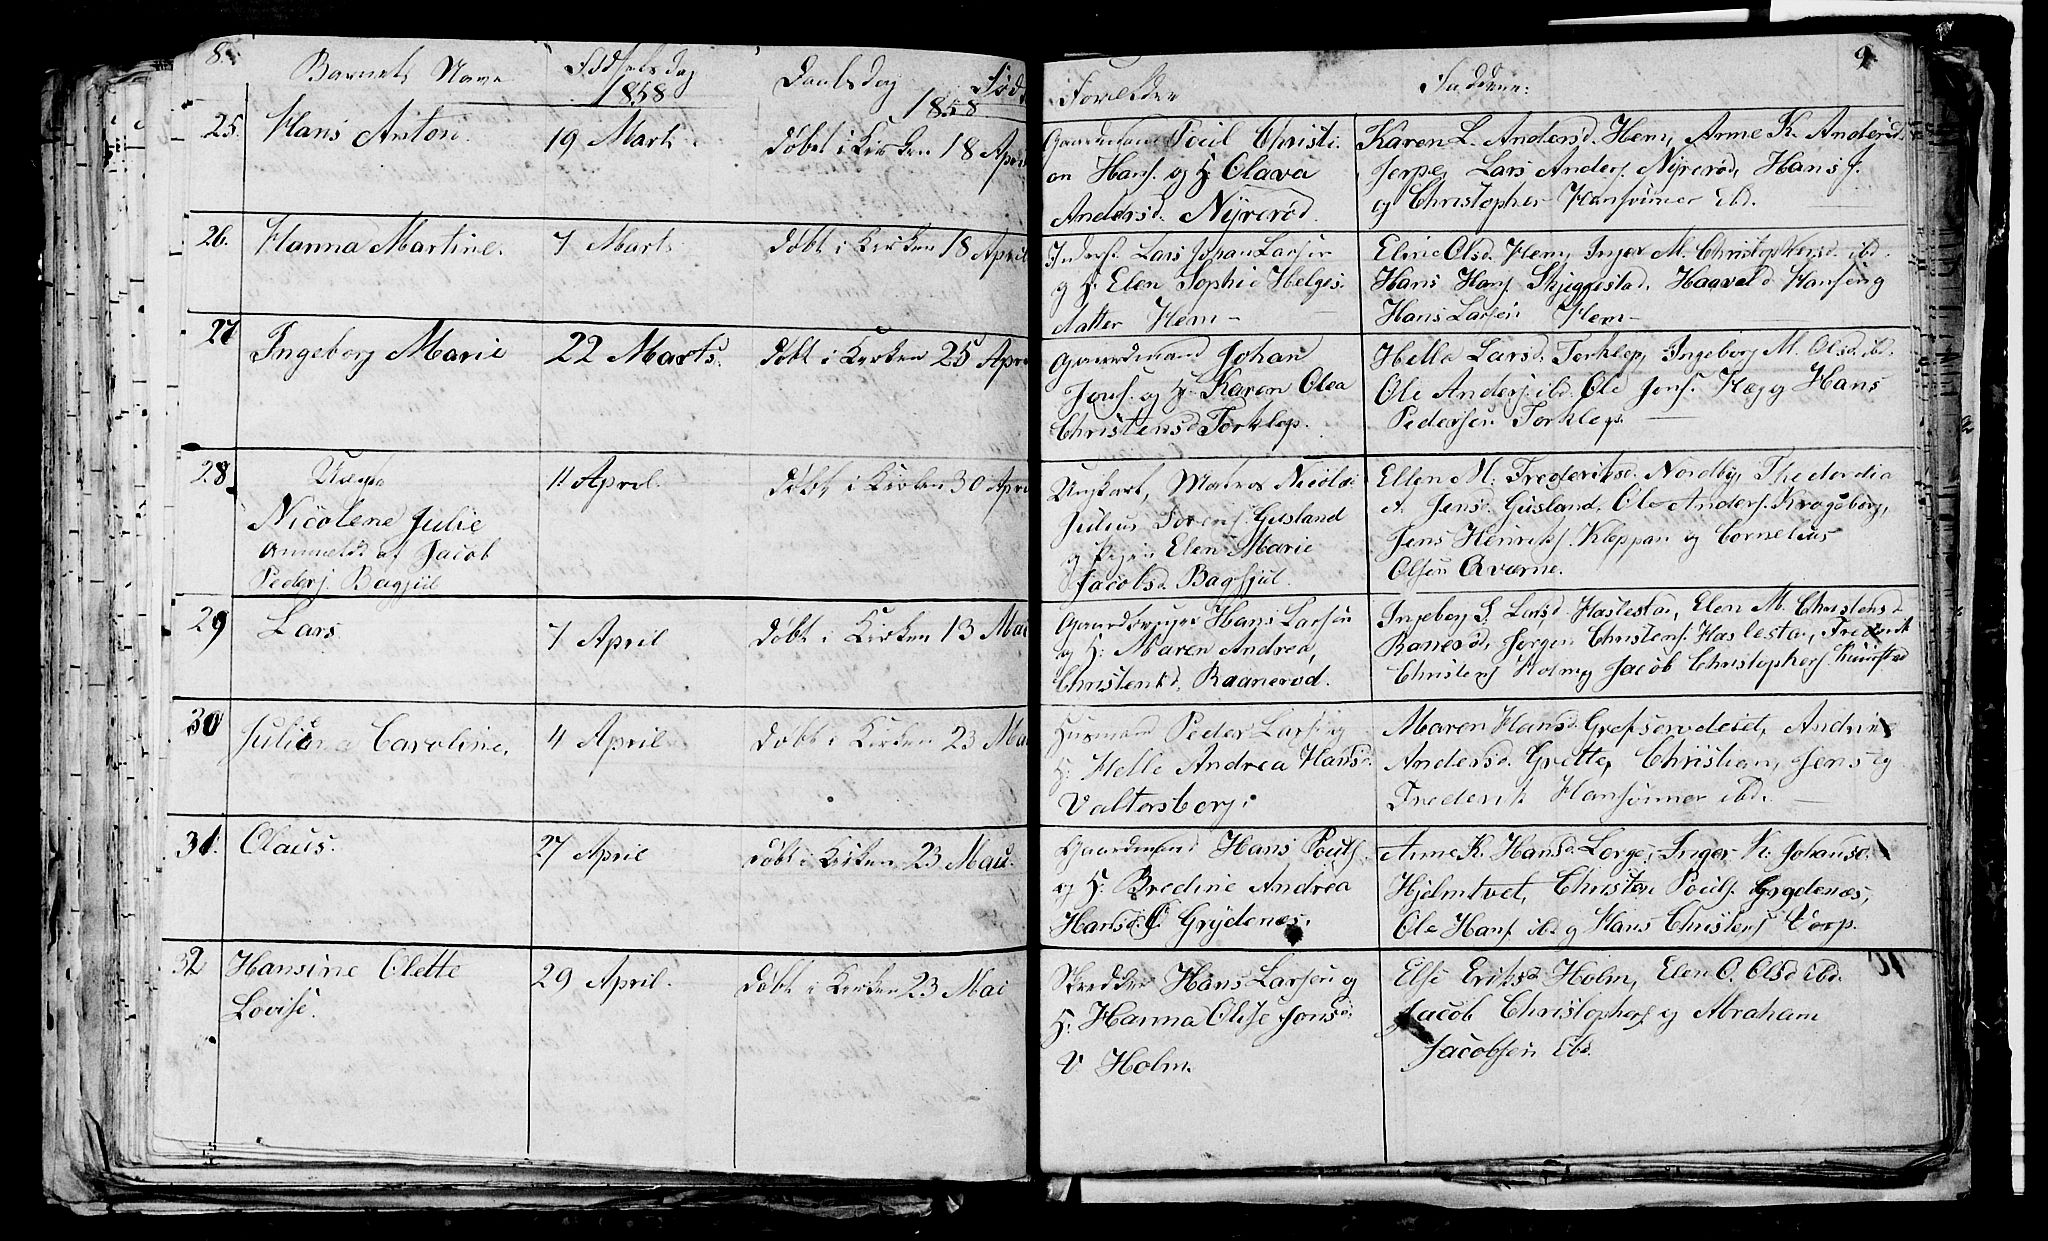 8.
Barnets Navn
Fødselsdag
1858
Daabsdag
1858.
25.
Hans Anton.
19 Marts
døbt i Kirken 18 April
26.
Hanna Martine.
7 Marts.
døbt i Kirken 18 April
27
Ingeborg Marie
22 Marts.
døbt i Kirken 25 Apri
28.
Uægte
Nicolene Julie
anmeldt af Jacob
Peders. Bagsjül
11 April.
døbt i Kirken 30 Apri
29
Lars
7 April
døbt i Kirken 13 Mai
30
Juliana Caroline.
4 April
døbt i Kirken 23 Ma
31.
Claus.
27 April
døbt i Kirken 23 Mai.
32
Hansine Olette
Lovise.
29 April.
døbt i Kirken 23 Mai
9.
Forældre
Faddere:
Gaardmand Poul Christi-
an Hans. og H. Olava
Andersd. Nyrerød.
Karen L. Andersd. Hem, Anne K. Andersd.
Jerpe, Lars Anders. Nyrerød, Hans J.
og Christopher Hansønner ibd.
Inderst Lars Johan Larsen
og H. Elen Sophie Helges-
datter Hem -
Eline Olsd. Hem, Inger M. Christophersd. ibd.
Hans Hans. Skjeggestad, Haavald Hansen og
Hans Larsen Hem -
Gaardmand Johan
Jons. og H. Karen Olea
Christensd. Torklep.
Helle Larsd. Torklep, Ingeborg M. Olsd. ibd.
Ole Anders. ibd. Ole Jons. Hæg og Hans
Pedersen Torklep.
Ungkarl, Matros Nicolai
Julius Sørens. Gusland
og Pigen Elen Marie
Jacobsd. Bagsjül.
Ellen M. Frederiksd. Nordby, Thedordia
A. Jensd. Gusland, Ole Anders. Krogsborg,
Jens Henriks. Kleppan og Cornelius
Olsen Qværne.
Gaardbruger Hans Larsen
og H. Maren Andrea
Christensd. Raanerød.
Ingeborg S. Larsd. Haslestad, Elen M. Christensd.
Ranerød, Jørgen Christens. Haslestad, Frederik
Christens. Holm og Jacob Christophers.
Husmand Peder Larsen og
H. Helle Andrea Hansd.
Valtersborg.
Maren Hansd. Grefsrødeiet, Andrine
Andersd. Grette, Christian, Jens og
Frederik Hansønner ibd.
Gaardmand Hans Pouls.
og H. Bredine Andrea
Hansd. Grydenes.
Anne K. Hansd. Lorge, Inger K. Johansd.
Hjelmtvet, Christen Pouls. Grydenæs,
Ole Hans. ibd og Hans Christens. Torp.
Skredder Hans Larsen og
H. Hanna Olise Jonsd.
V Holm.
Else Eriksd Holm, Elen O. Olsd ibd.
Jacob Christophers og Abraham
Jacobsen ibd.